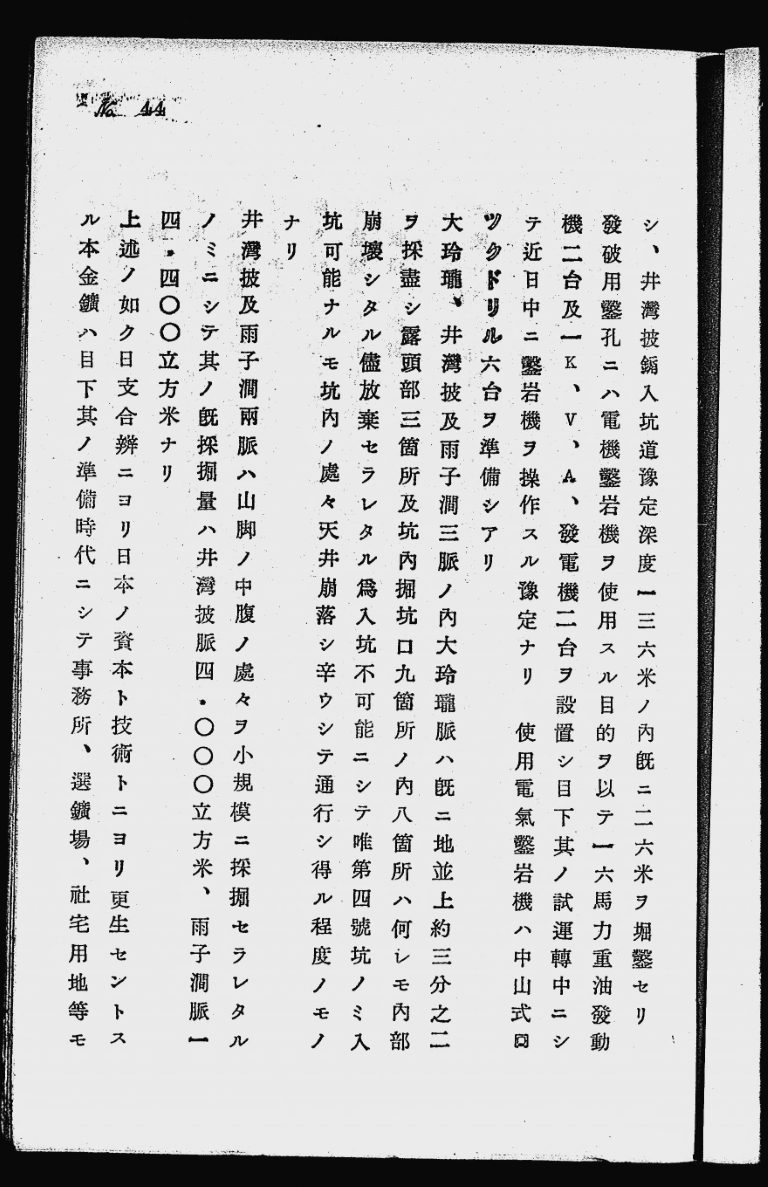 No 44
シ、井灣披鎚入坑道豫定深度一三六米ノ內旣ニ二六米ヲ堀鑿セリ
發破用鑿孔ニハ電機鑿岩機ヲ使用スル目的ヲ以テ一六馬力重油發動
機二台及一K、V、A、發電機二台ヲ設置シ目下其ノ試運轉中ニシ
テ近日中ニ鑿岩機ヲ操作スル豫定ナリ 使用電氣鑿岩機ハ中山式ロ
ツクドリル六台ヲ準備シアリ
大玲瓏、井灣披及雨子澗三脈ノ內大玲瓏脈ハ旣ニ地並上約三分之二
ヲ採盡シ露頭部三箇所及坑內掘坑口九箇所ノ內八箇所ハ何レモ內部
崩壞シタル儘放棄セラレタル爲入坑不可能ニシテ唯第四號坑ノミ入
坑可能ナルモ坑內ノ處々天井崩落シ辛ウシテ通行シ得ル程度ノモノ
ナリ
井灣披及雨子澗兩脈ハ山脚ノ中腹ノ處々ヲ小規模ニ採掘セラレタル
ノミニシテ其ノ旣採掘量ハ井灣披脈四.〇〇〇立方米、雨子澗脈一
四.四〇〇立方米ナリ
上述ノ如ク日支合辨ニヨリ日本ノ資本ト技術トニヨリ更生セントス
ル本金鑛ハ目下其ノ準備時代ニシテ事務所、選鑛場、社宅用地等モ